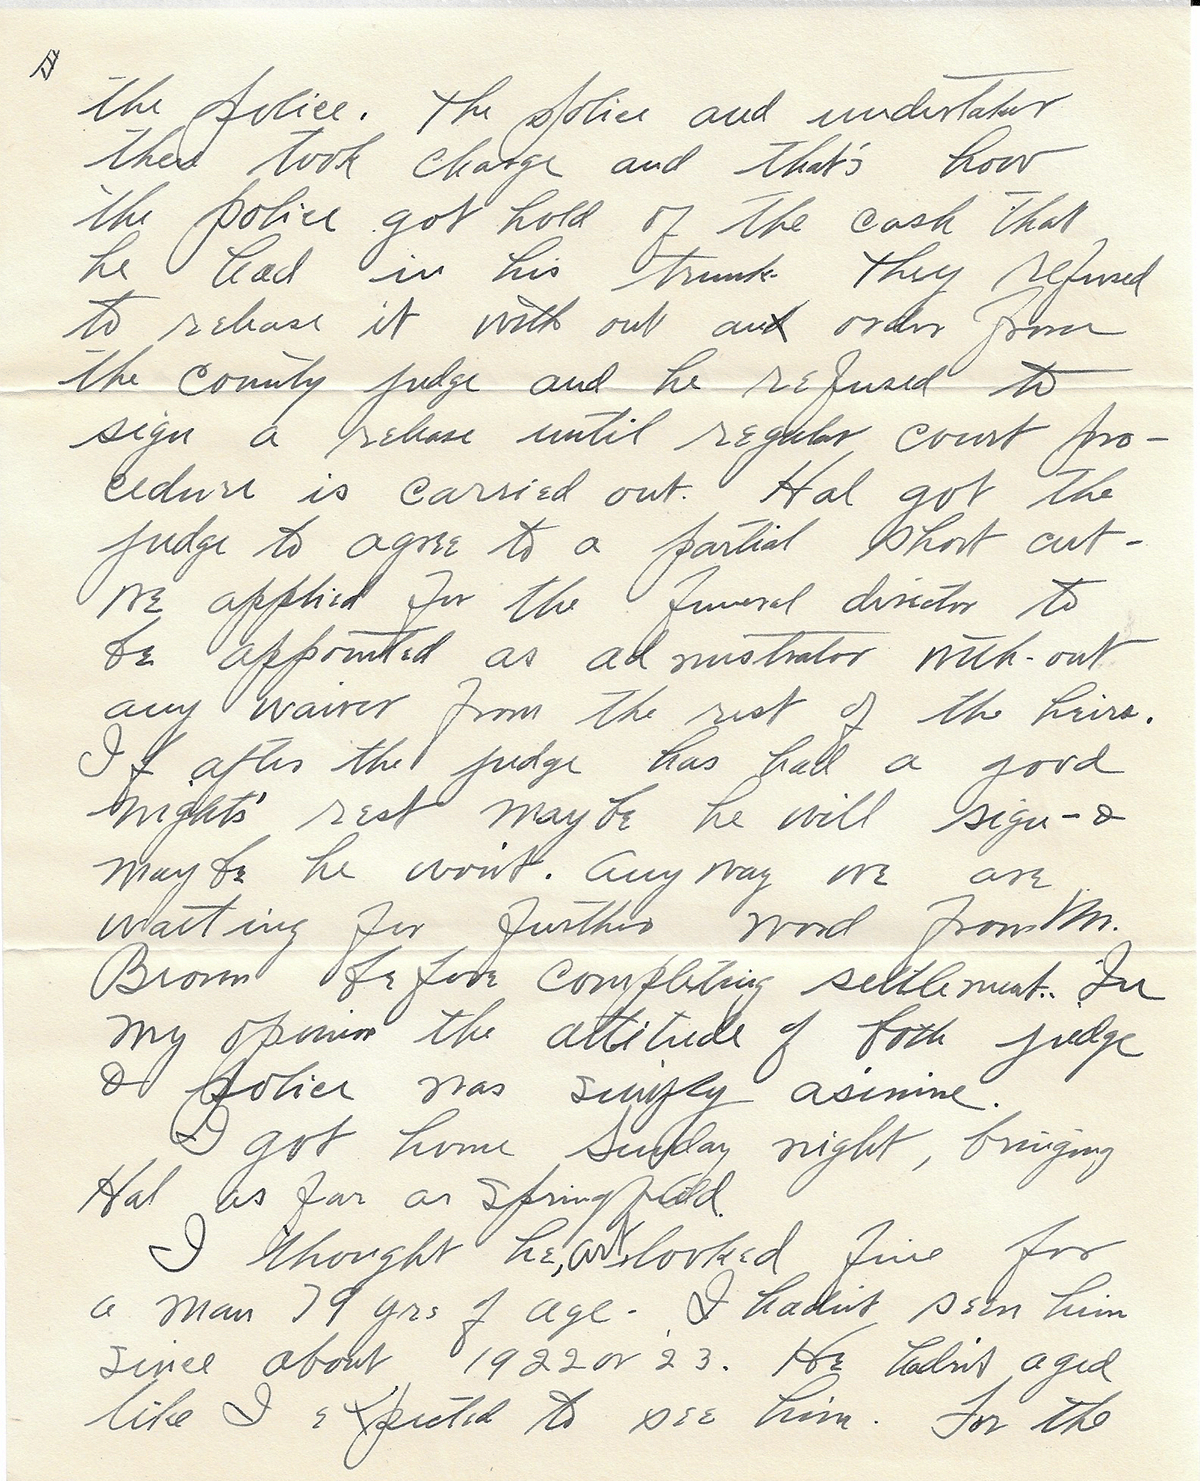 the police. The police and undertaker
then took charge and that's how
the police got hold of the cash that
he had in his trunk. They refused
to release it with out an order from
the county judge and he refused to
sign a release until regular court pro-
cedure is carried out. Hal got the
judge to agree to a partial short cut-
we applied for the funeral director to
be appointed as administrator with-out
any waiver from the rest of the heirs.
If after the judge has had a good
nights' rest maybe he will sign - &
maybe he won't. Anyway we are
waiting for further word from Mr.
Brown before completing settlement. In
my opinion the attitude of both judge
& police was simply asinine.
I got home Sunday night, bringing
Hal as far as Springfield.
I thought he, looked fine for
a man 79 yrs of age. I hadn't seen him
since about 1922 or 23. He hadn't aged
like I expected to see him. For the